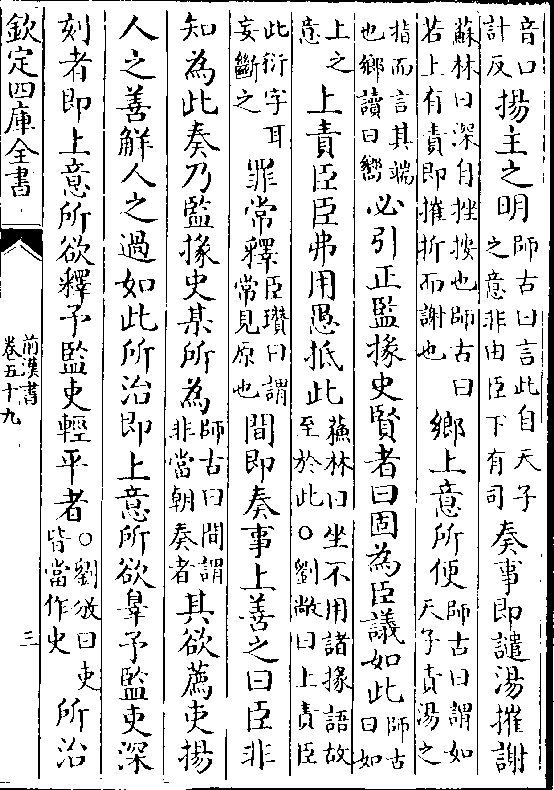 音口計反揚主之明師古曰言此自天子之意非由臣下有司奏事即譴湯摧謝
蘇林曰深自挫按也師古曰若上有責即摧折而謝也鄉上意所便師古曰謂如天子責湯之
指而言其端也鄉讀曰嚮必引正監掾史賢者曰固為臣議如此師古曰如
上之意上責臣臣弗用愚抵此蘇林曰坐不用諸掾語故至於此○劉敞曰上責臣
此衍字耳妄斷之罪常釋臣瓚曰謂常見原也間即奏事上善之曰臣非
知為此奏乃監掾史某所為師古曰間謂非當朝奏者其欲薦吏揚
人之善解人之過如此所治即上意所欲辠予監吏深
刻者即上意所欲釋予監吏輕平者○劉攽曰吏皆當作史所治
欽定四庫全書
前漢書
卷五十九
三